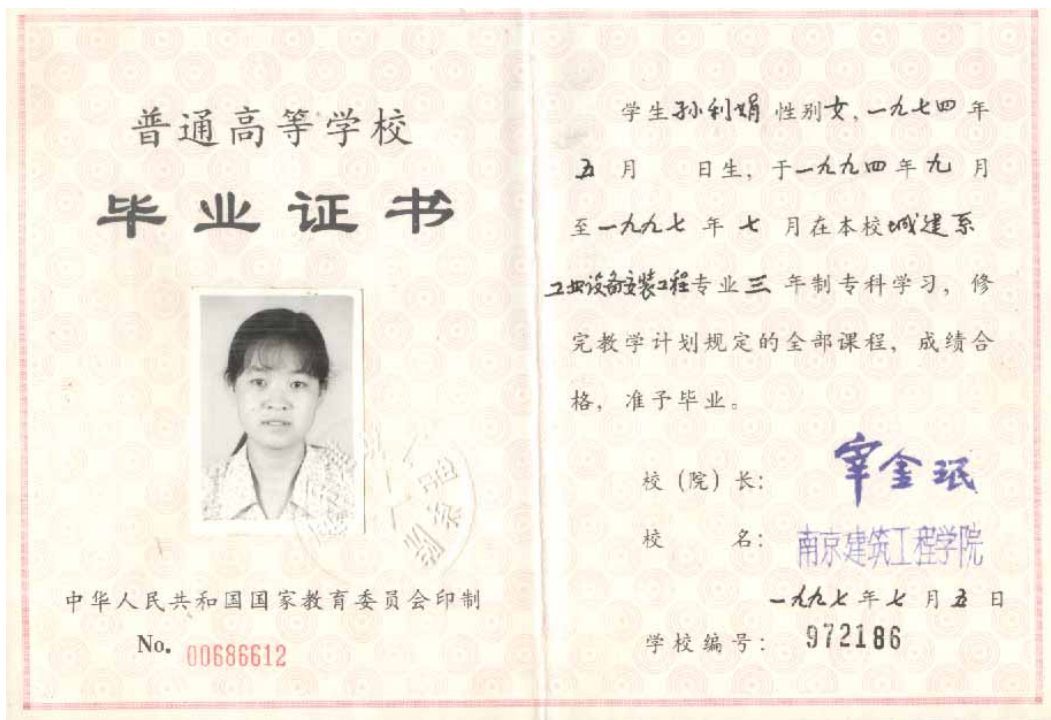 普通高等学校
毕业证书
中华人民共和国国家教育委员会印制
No. 00686612
学生孙利娟性别女，一九七四年
五月 日生，于一九九四年九月
至一九九七年七月在本校城建系
工业设备安装工程专业三年制专科学习，修
完教学计划规定的全部课程，成绩合
格，准予毕业。
校（院）长：宰金珉
校 名：南京建筑工程学院
一九九七年七月五日
学校编号：972186